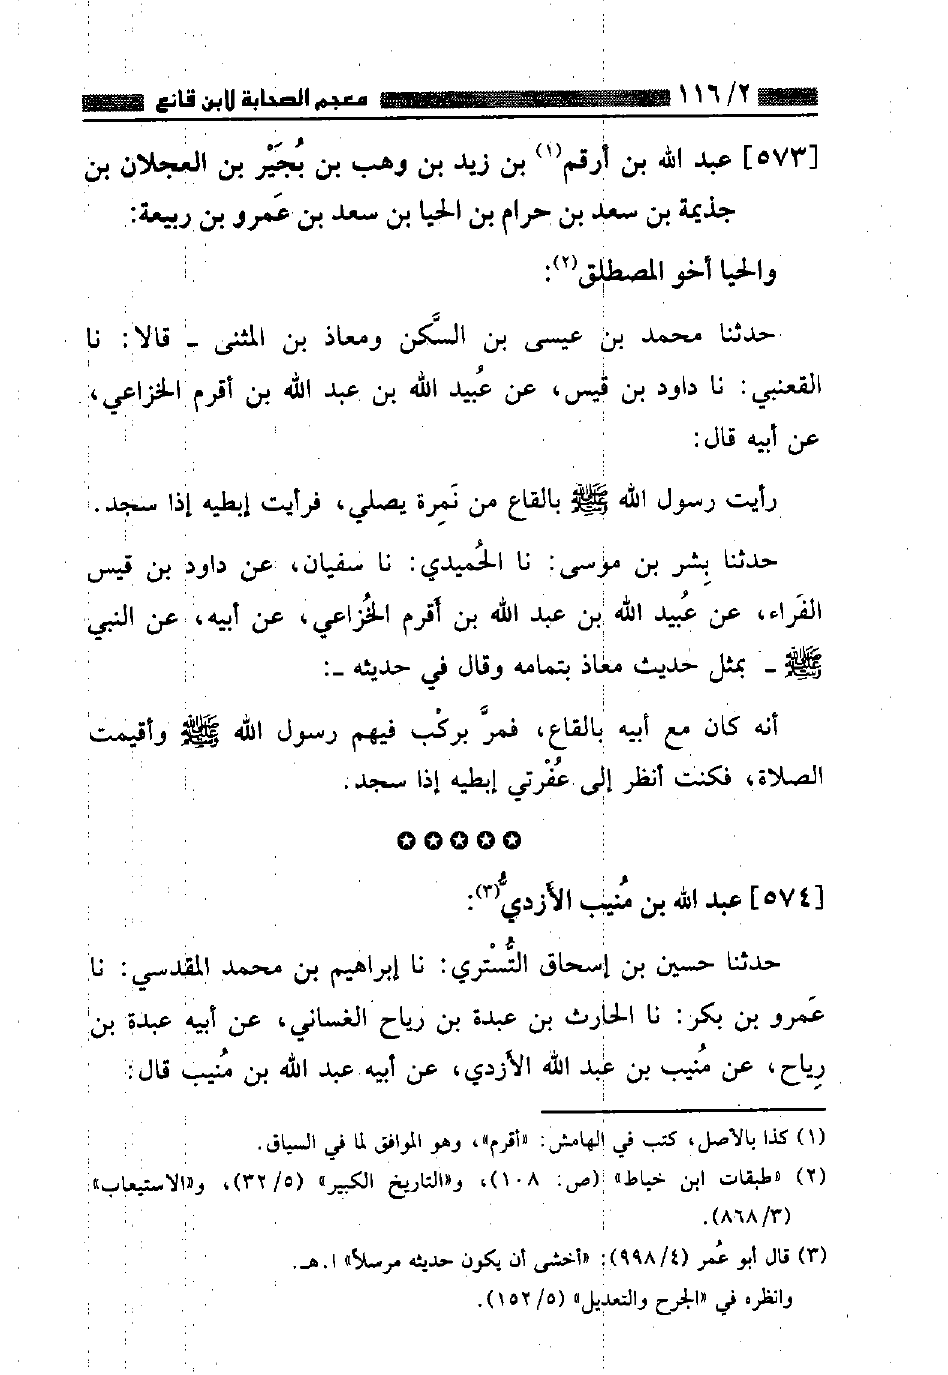 ١١٦/٢ معجم الصحابة لابن قانع
[٥٧٣] عبد الله بن أرقم(١) بن زيد بن وهب بن بُجَيْر بن العجلان بن
جذيمة بن سعد بن حرام بن الحيا بن سعد بن عَمرو بن ربيعة:
والحيا أخو المصطلق(٢):
حدثنا محمد بن عيسى بن السَّكن ومعاذ بن المثنى ـ قالا: نا
القعنبي: نا داود بن قيس، عن عُبيد الله بن عبد الله بن أقرم الخزاعي،
عن أبيه قال:
رأيت رسول الله ﷺ بالقاع من نَمِرة يصلي، فرأيت إبطيه إذا سجد.
حدثنا بِشر بن موسى: نا الحُميدي: نا سفيان، عن داود بن قيس
الفَراء، عن عُبيد الله بن عبد الله بن أَقرم الخُزاعي، عن أبيه، عن النبي
ﷺ ـ بمثل حديث معاذ بتمامه وقال في حديثه ـ:
أنه كان مع أبيه بالقاع، فمرَّ بركْب فيهم رسول الله ﷺ وأقيمت
الصلاة، فكنت أنظر إلى عُفْرتي إبطيه إذا سجد.
[٥٧٤] عبد الله بن مُنيب الأَزديُّ(٣):
حدثنا حسين بن إسحاق التُّسْتري: نا إبراهيم بن محمد المقدسي: نا
عَمرو بن بكر: نا الحارث بن عبدة بن رياح الغساني، عن أبيه عبدة بن
رِياح، عن مُنيب بن عبد الله الأزدي، عن أبيه عبد الله بن مُنيب قال:
(١) كذا بالأصل، كتب في الهامش: «أقرم»، وهو الموافق لما في السياق.
(٢) «طبقات ابن خياط» (ص: ١٠٨)، و«التاريخ الكبير» (٣٢/٥)، و«الاستيعاب»
(٨٦٨/٣).
(٣) قال أبو عُمر (٩٩٨/٤): «أخشى أن يكون حديثه مرسلاً» ا.هـ.
وانظره في «الجرح والتعديل» (١٥٢/٥).